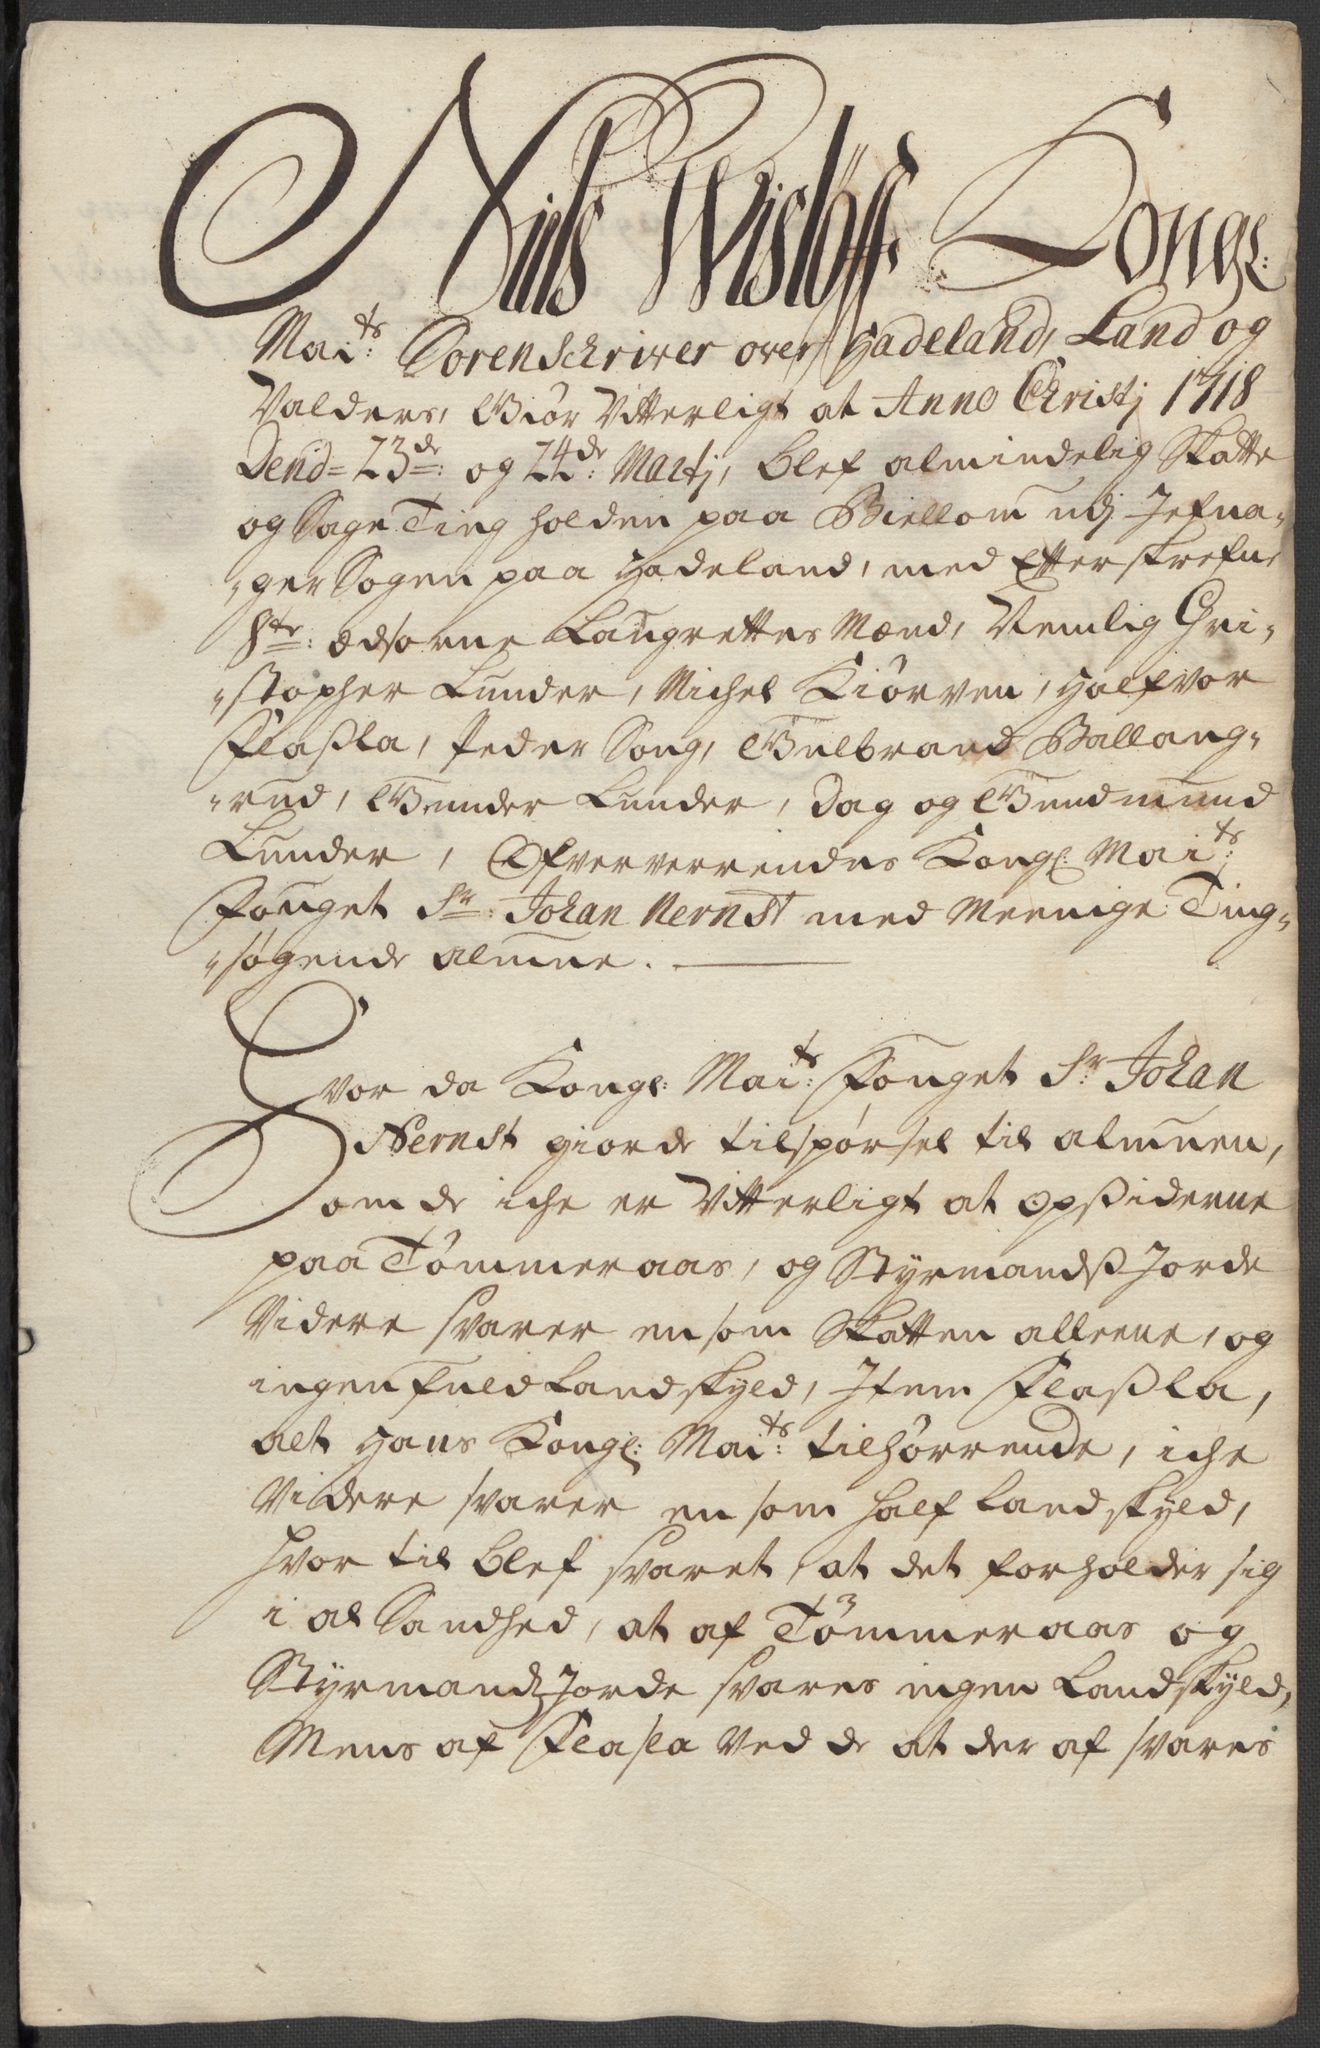 Niels Wisløff Kongl:
Maits: Sorenschriver over Hadeland, Land og
Valders, Giör Vitterligt at Anno Christj 1718
Dend= 23de: og 24de: Martj, blef almindelig Skatte
og Sage Ting holden paa Biellom udj Jefna-
-ger Sogen paa Hadeland, med Efterskrefne
8te: Edsorne Laugrettes Mænd, Nemlig Chri-
-stopher Lunder, Michel Kiörven, Halfvor
Flaßla, Peder Song, Gulbrand Ballang-
-rud, Gunder Lunder, Dag og Gundmund
Lunder, Ofververrendes Kongl: Maits:
Fouget Sr: Johan Nernst med Meenige Ting-
-søgende almue.
Hvor da Kongl: Maits: Fouget Sr: Johan
Nernst giorde tilspørsel til almuen,
om de iche er Vitterligt at opsiderne
paa Tömmeraas, og Styrmandß Jorde
Videre svarer en som Skatten alleene, og
ingen fuld Landskyld, Item Flaßla,
alt Hans Kongl: Maits: tilhörrende, iche
Videre svarer en som half Landskyld,
hvor til blef svaret, at det forholder sig
i al Sandhed, at af Tömmeraas og
Styrmands Jorde svares ingen Landskyld,
Mens af Flasla Ved de at der af svares